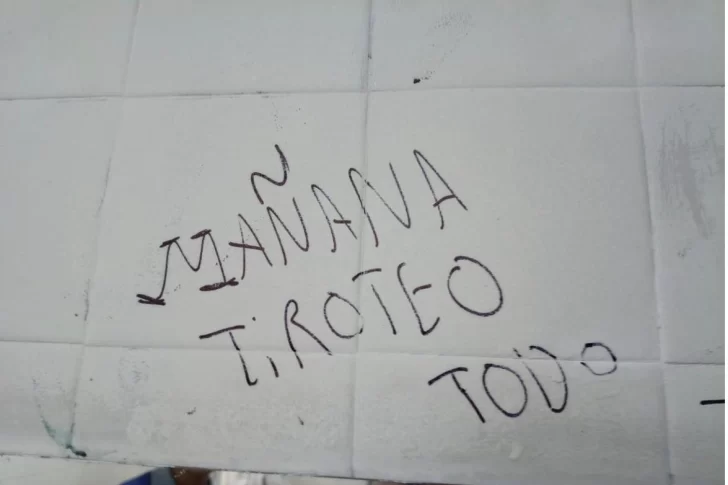 MAÑANA
TIROTEO
TODO